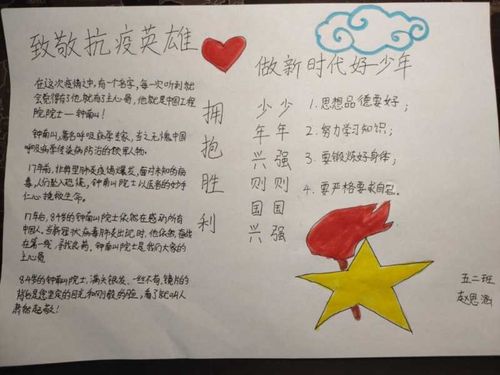 致敬抗疫英雄
做新时代好少年
在这次疫情之中,有一个名字,每一次听到就
会觉得有了他,就有了主心骨,他就是中国工程
院院士——钟南山!
钟南山,著名呼吸病学专家,当之无愧中国
呼吸病学传染病防治的领军人物。
17年前,非典型肺炎疫情爆发,面对未知的病
毒,人们坠入恐慌,钟南山院士以医者的妙手
仁心挽救生命。
17年后,84岁的钟南山院士依然在感动所有
中国人。当新冠状病毒肺炎出现时,他依然奋战
在第一线,寻找良药,钟南山院士是我们大家的
主心骨
84岁的钟南山院士,满头银发,一丝不苟,镜片的
背后是您坚定的目光和刚毅的脸,看了就叫人
肃然起敬!
拥抱胜利
少年兴则国兴
少年强则国强
1.思想品德要好;
2.努力学习知识;
3.要锻炼好身体;
4.要严格要求自己。
五二班
赵思涵